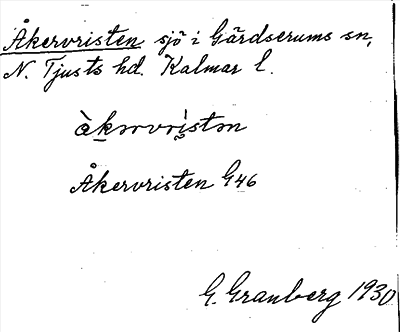 Åkervristen sjö i Gärdserums sn,
N. Tjusts hd. Kalmar l.
àkərvrìstən
Åkervristen G46
G. Granberg 1930